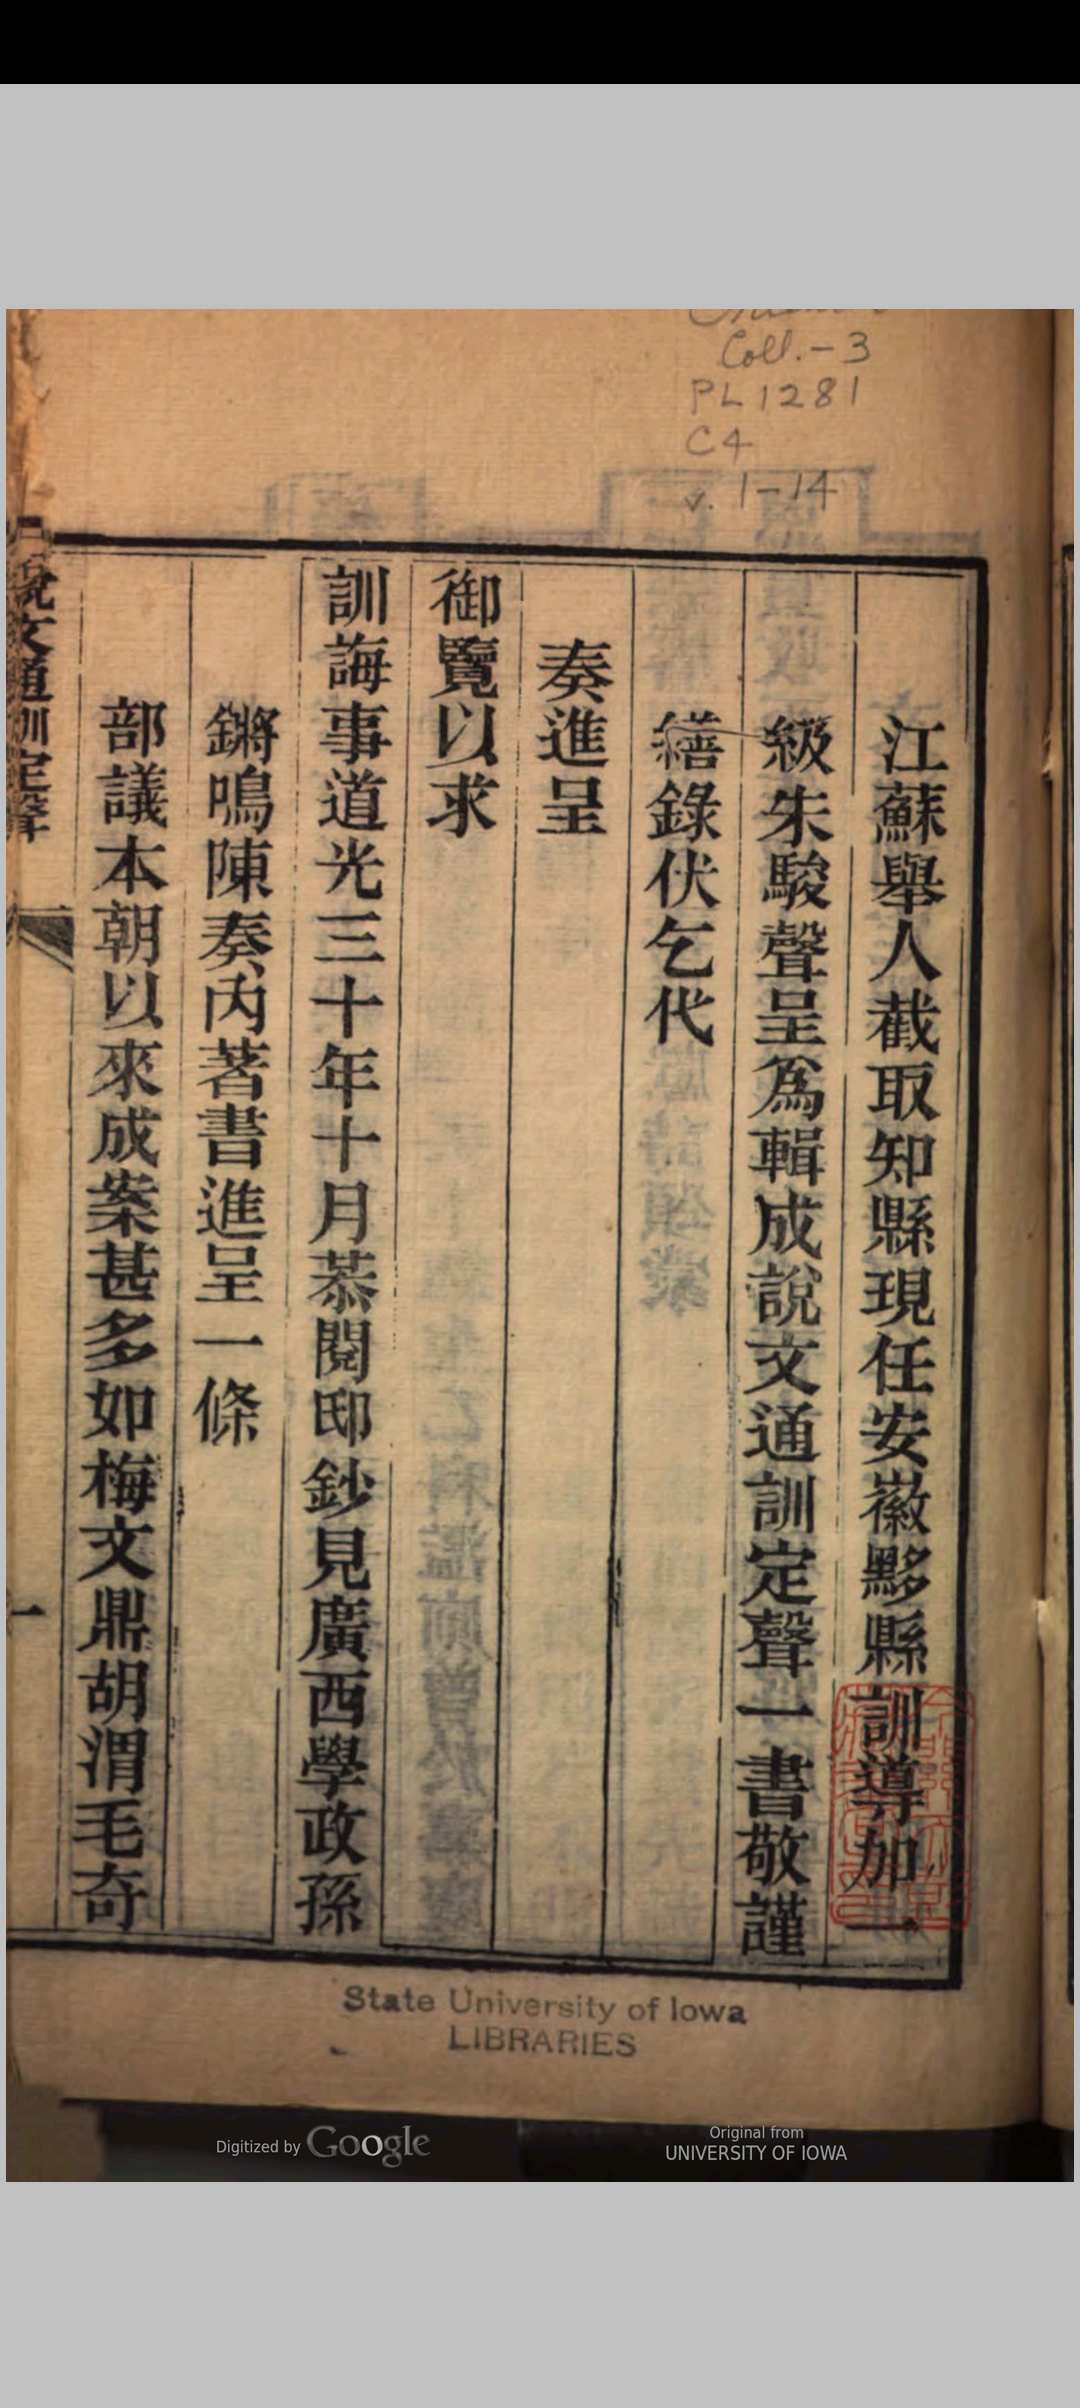 Coll.-3
PL1281
C4
v. 1-14
江蘇舉人截取知縣現任安徽黟縣訓導加一
級朱駿聲呈爲輯成說文通訓定聲一書敬謹
繕錄伏乞代
奏進呈
御覽以求
訓誨事道光三十年十月恭閱邸鈔見廣西學政孫
鏘鳴陳奏內著書進呈一條
部議本朝以來成案甚多如梅文鼎胡渭毛奇
說文通訓定聲
一
State University of Iowa
LIBRARIES
Digitized by Google
Original from
UNIVERSITY OF IOWA